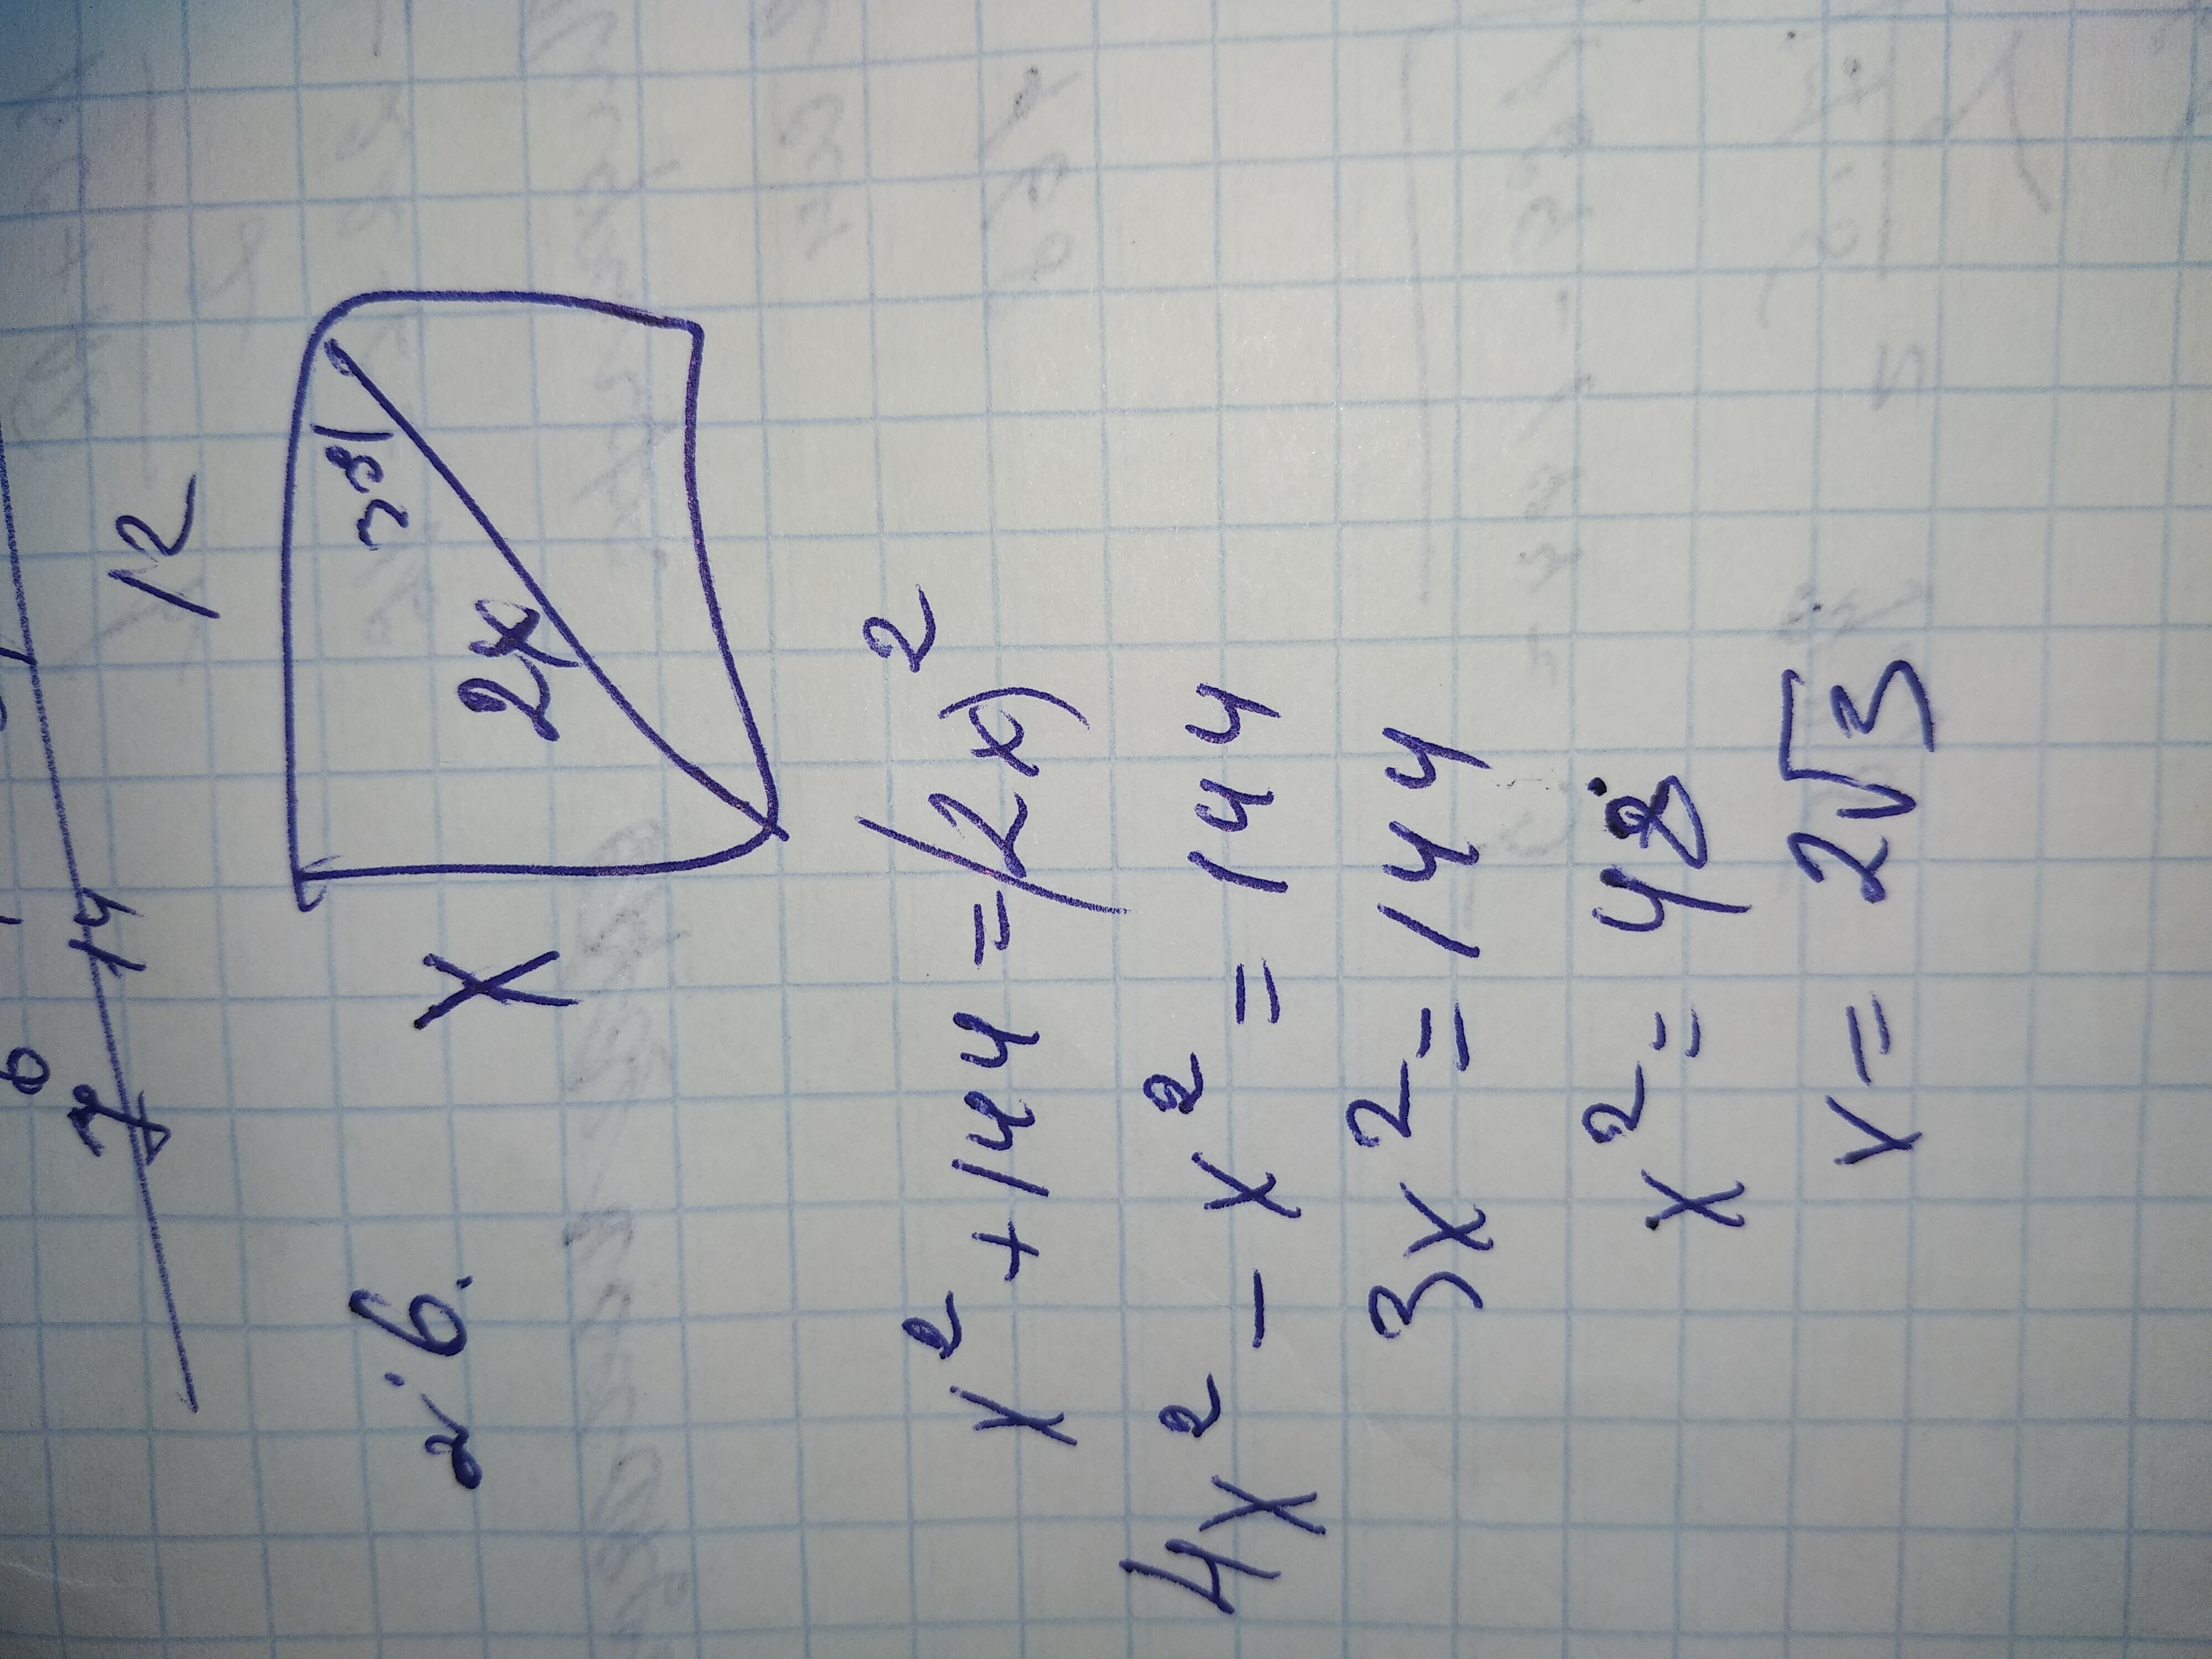 12
30°
2x
x
№6.
x² + 144 = (2x)²
4x² - x² = 144
3x² = 144
x² = 48
x = 2√3